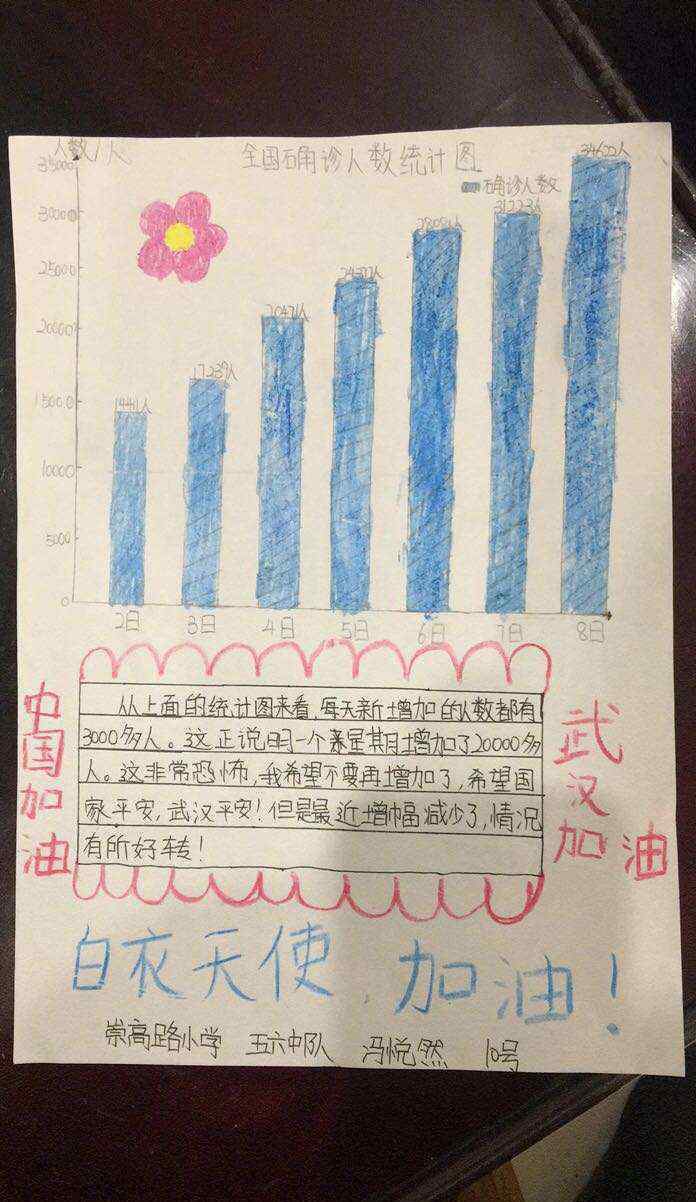 人数/人
全国确诊人数统计图
确诊人数
35000
30000
25000
20000
15000
10000
5000
0
17239人
34600人
2日 3日 4日 5日 6日 7日 8日
从上面的统计图来看,每天新增加的人数都有
3000多人。这正说明一个星期增加了20000多
人。这非常恐怖,我希望不要再增加了,希望国
家平安,武汉平安!但是最近增幅减少了,情况
有所好转!
中国加油
武汉加油
白衣天使 加油!
崇高路小学 五六中队 冯悦然 10号